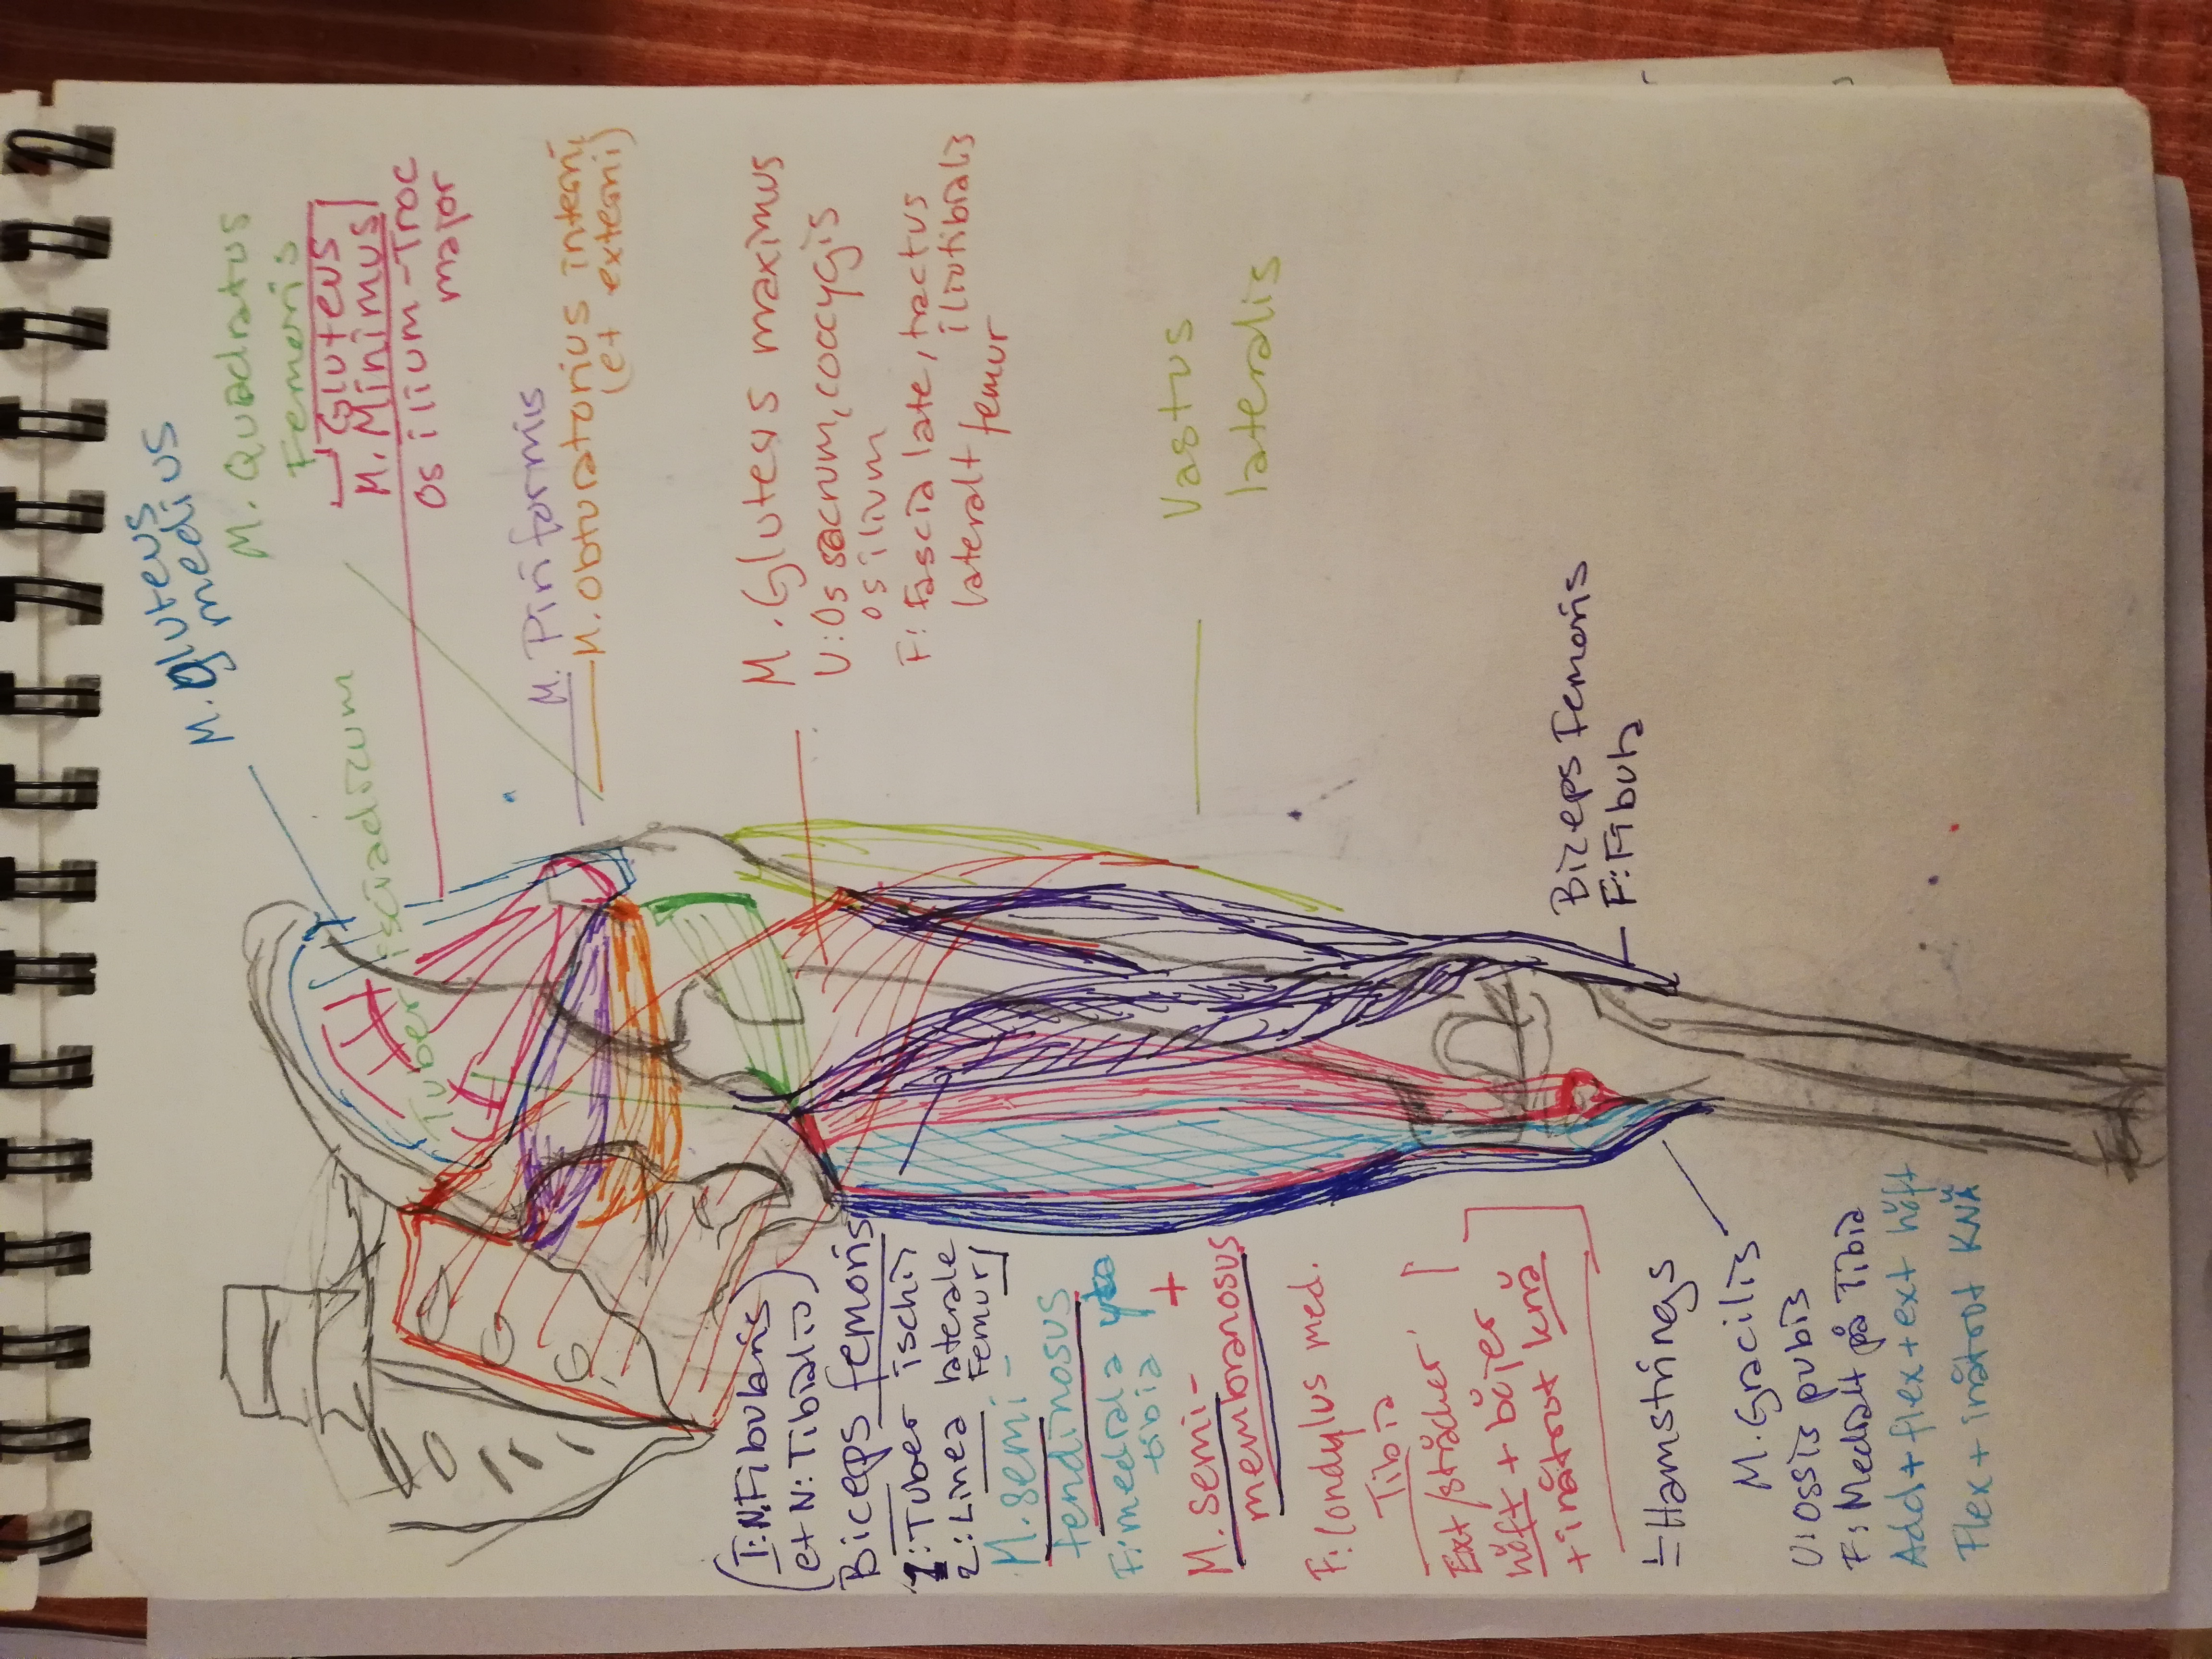 M. Gluteus
medius
M. Quadratus
Femoris
Gluteus
M. Minimus
Os ilium-Troc
major
Tuber isciadicum
M. Piriformis
M. Obturatorius interni
(et externi)
M. Gluteus maximus
U: Os sacrum, coccygis
os ilium
F: Fascia late, tractus
iliotibialis
lateralt femur
Vastus
lateralis
Bizeps Femoris
F: Fibula
(I: N. Fibularis
et N: Tibialis)
Biceps femoris
1: Tuber ischii
2: Linea laterale
Femur
M. semi-
tendinosus
F: mediala
tibia +
M. semi-
membranosus
F: Condylus med.
Tibia
Ext/sträcker
höft + böjer
+ inåtrot knä
= Hamstrings
M. Gracilis
U: Ossis pubis
F: Medialt på Tibia
Add + flex + ext höft
Flex + inåtrot KNÄ